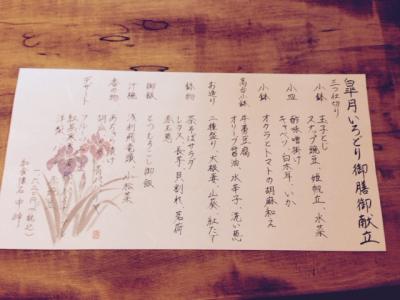 皐月いろどり御膳御献立
三つ仕切り
小鉢 玉子とじ
スナップ豌豆、姫帆立、水菜
小皿 酢味噌掛け
キャベツ、白木耳、いか
小鉢 オカラとトマトの胡麻和え
高台小鉢 牛蒡豆腐
オリーブ醤油、水辛子、洗い葱
お造り 二種盛り、大根妻、山葵、紅たで
鉢物 茶そばサラダ
レタス、長芋、貝割れ、茗荷
赤玉葱
御飯 とうもろこし御飯
汁椀 浅利
小松菜
香の物
漬け
胡瓜
デザート
紅茶
洋梨
和食